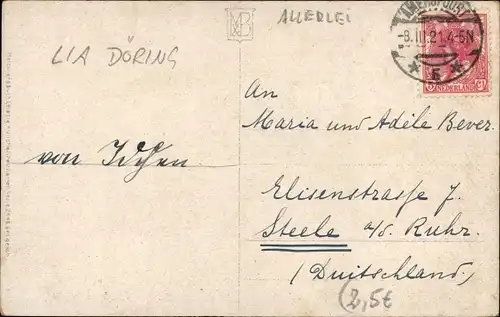 ALLERLEI
LIA DÖRING
AMERSFOORT
-8.III.21.4-5N
5
NEDERLAND
An
Maria und Adèle Bever.
von Idchen.
Elisenstrasse 7.
Steele a/d. Ruhr.
(Duitschland)
2,5€